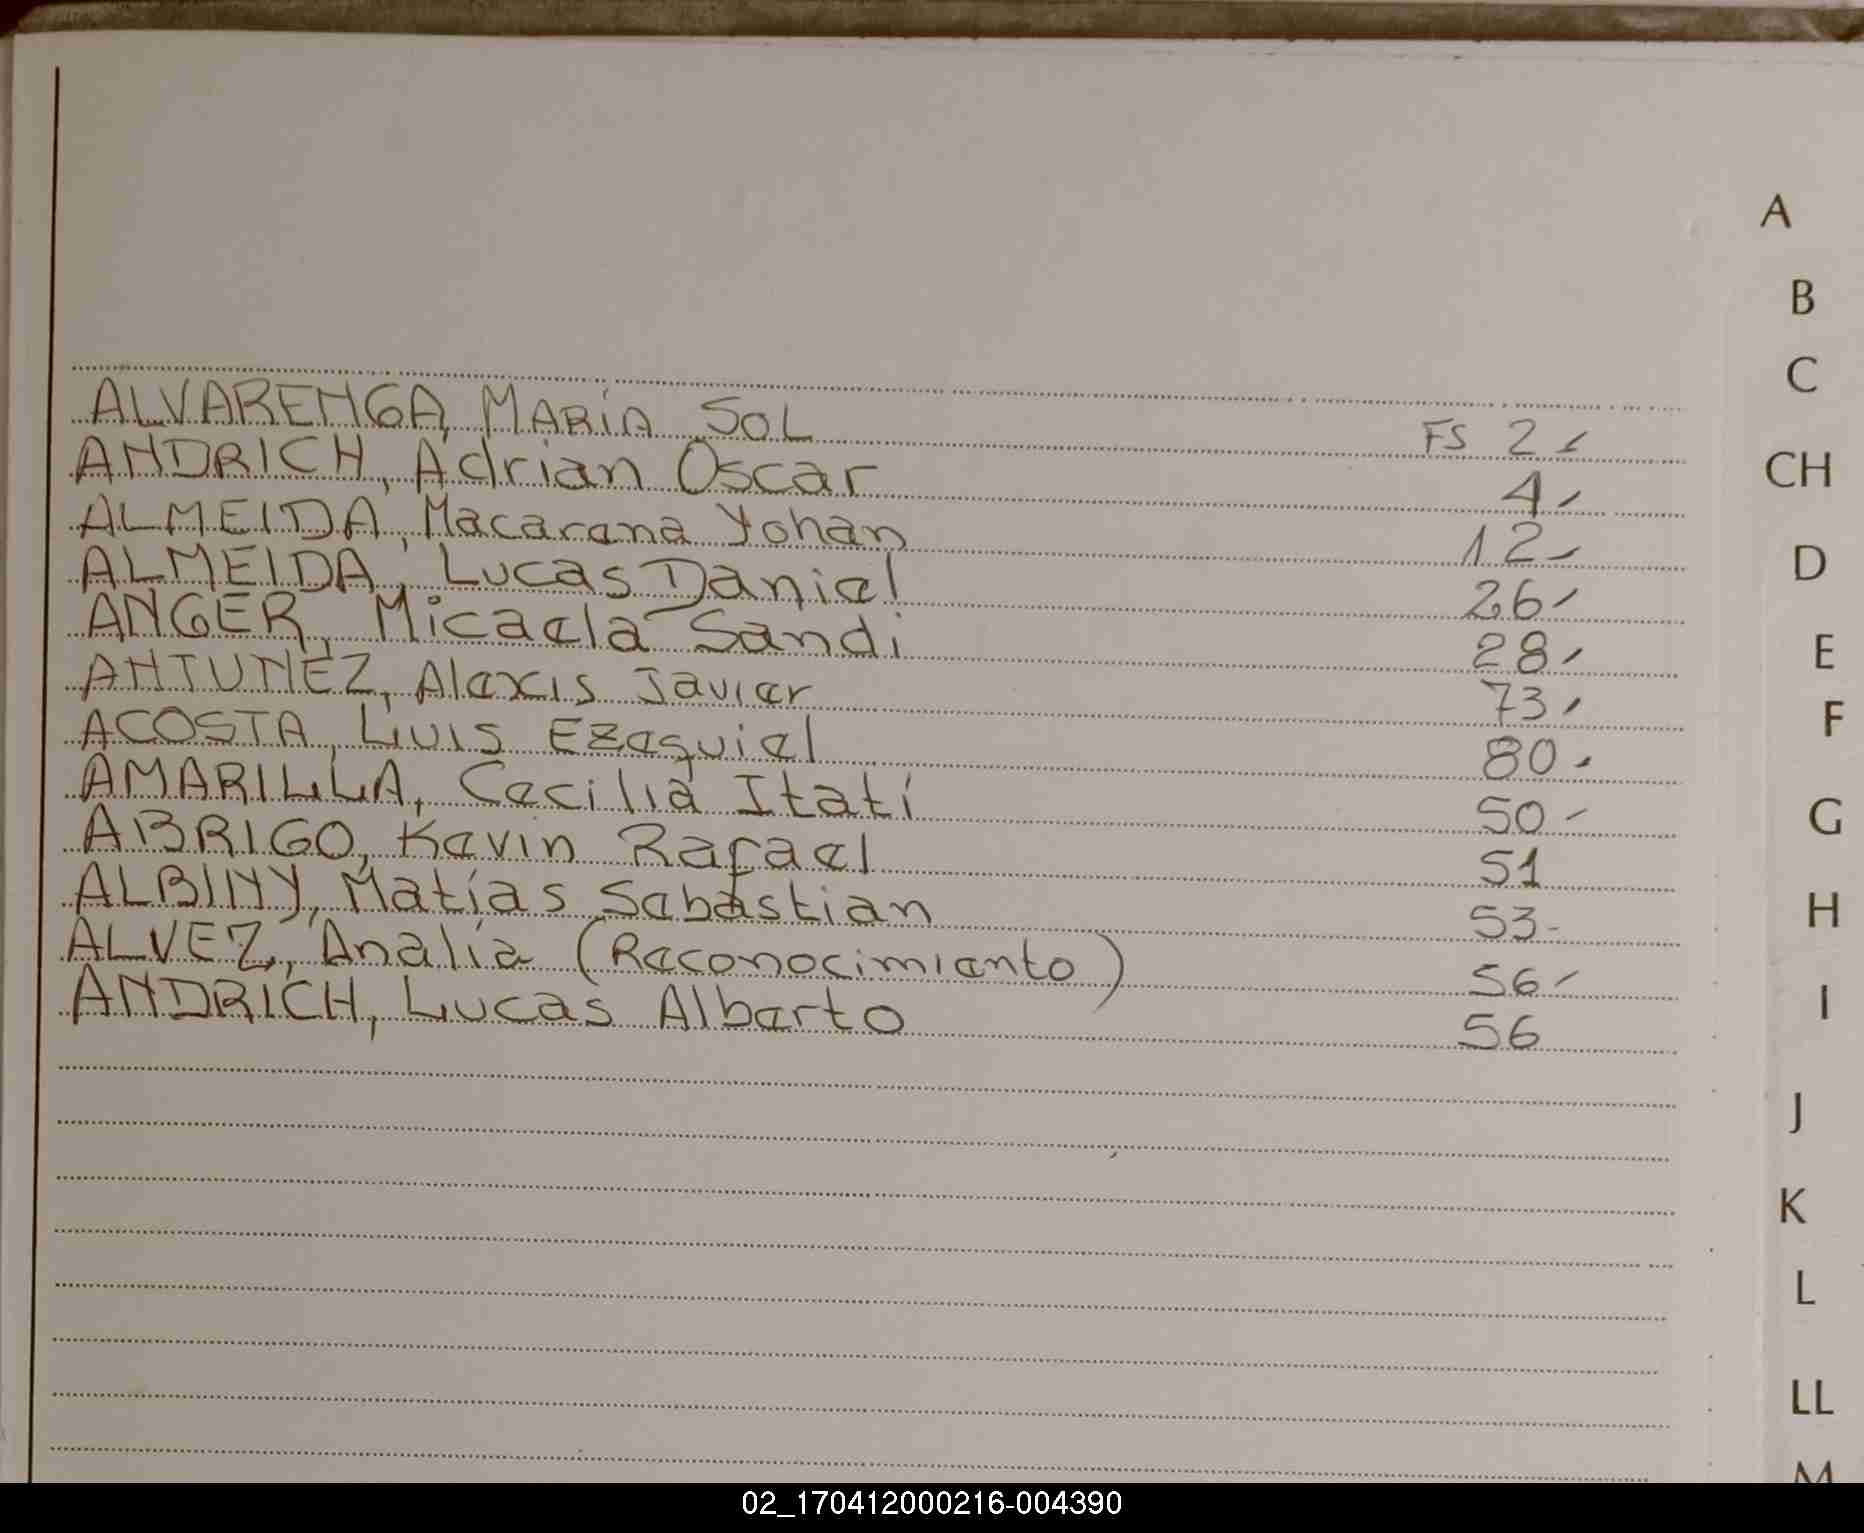 ALVARENGA, MARÍA SOL FS 2
ANDRICH, Adrian Oscar 4
ALMEIDA, Macarena Yohan 12
ALMEIDA, Lucas Daniel 26
ANGER, Micaela Sandi 28
ANTUNEZ, Alexis Javier 73
ACOSTA, Luis Ezequiel 80
AMARILLA, Cecilia Itatí 50
ABRIGO, Kevin Rafael 51
ALBINY, Matías Sebastian 53
ALVEZ, Analía (Reconocimiento) 56
ANDRICH, Lucas Alberto 56
A
B
C
CH
D
E
F
G
H
I
J
K
L
LL
M
02_170412000216-004390